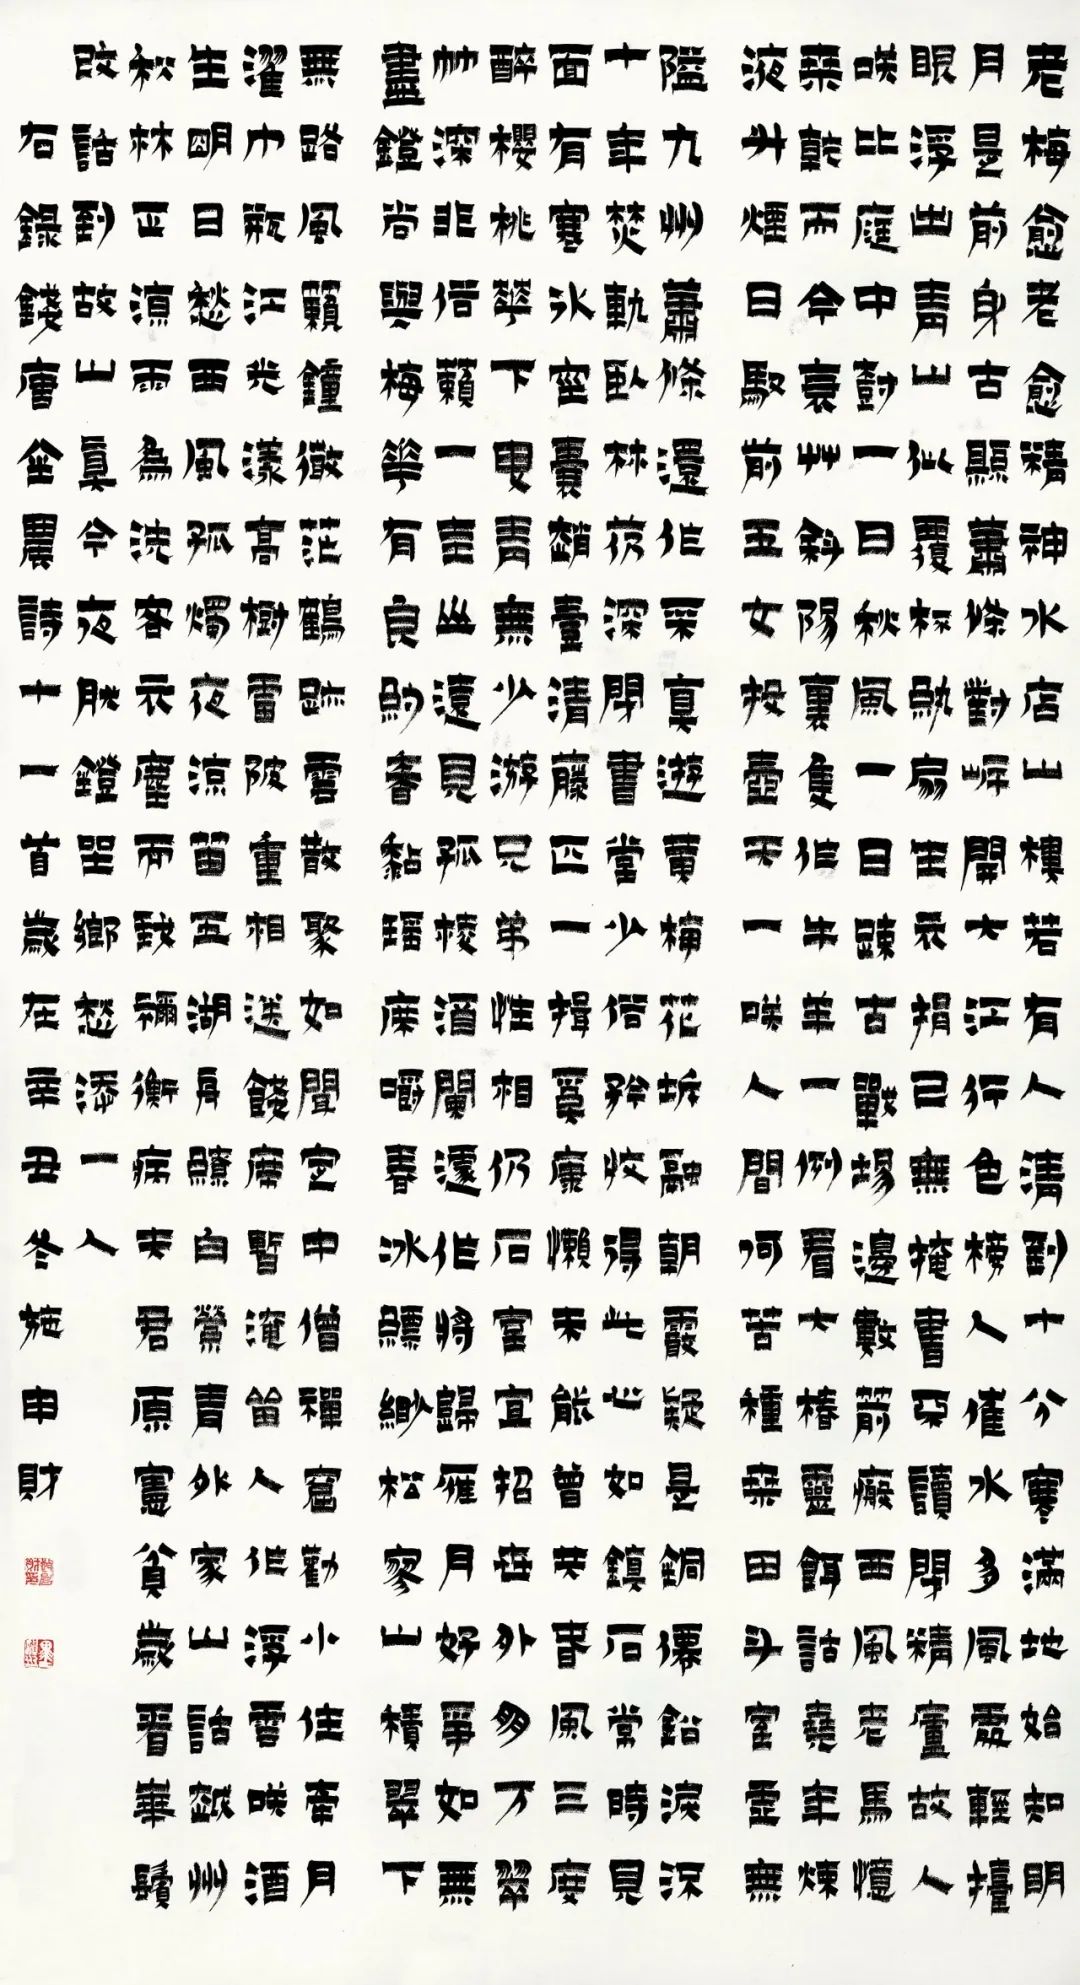 老梅愈老愈精神水店山樓若有人清到十分寒滿地始知明
月是前身古顯蕭條對岸開大江行色榜人催水多風處輕擡
眼浮出青山似覆杯紈扇生衣捐已無掩書不讀閉精廬故人
咲比庭中樹一日秋風一日踈古戰場邊數箭瘢西風老馬憶
桒乾而今衰艸斜陽裏隻作牛羊一例看大椿靈餌詁堯年煉
液升煙日馭前玉女投壺天一咲人間何苦種桒田斗室霊無
隘九州蕭條還作采真遊黃梅花坼融朝霞疑是銅僊鉛淚
十年焚軌臥林彷深閉書堂少俗矜收得此心如鎮石常時見
面有寒冰空囊趙壹清匹一揖奚康懶未能曾共春風三度
醉櫻桃華下更青無少游兄弟性相仍石室宜招世外朋萬翠
竹深非俗籟一聲幽遠見孤棱酒闌遽作將歸雁月好爭如無
盡鐙尚與梅華有良約香黏瑤席嚼春冰縹緲松寥山積翠下
無路風籟鐘徹茫鶴跡雲散聚如聞定中僧禪窟勸小住牽月
濯巾瓶江光漾高樹雷陂重相送餞席暫淹留人作浮雲咲酒
生明日愁西風孤燭夜涼留五湖舟縹白鷺青外家山話越州
秋林正涼雨為洗客衣塵而致禰衡病夫君原憲貧歲看華鬢
改話到故山真今夜鐙坐鄉愁添一人
右錄錢唐金農詩十一首歲在辛丑冬施申財